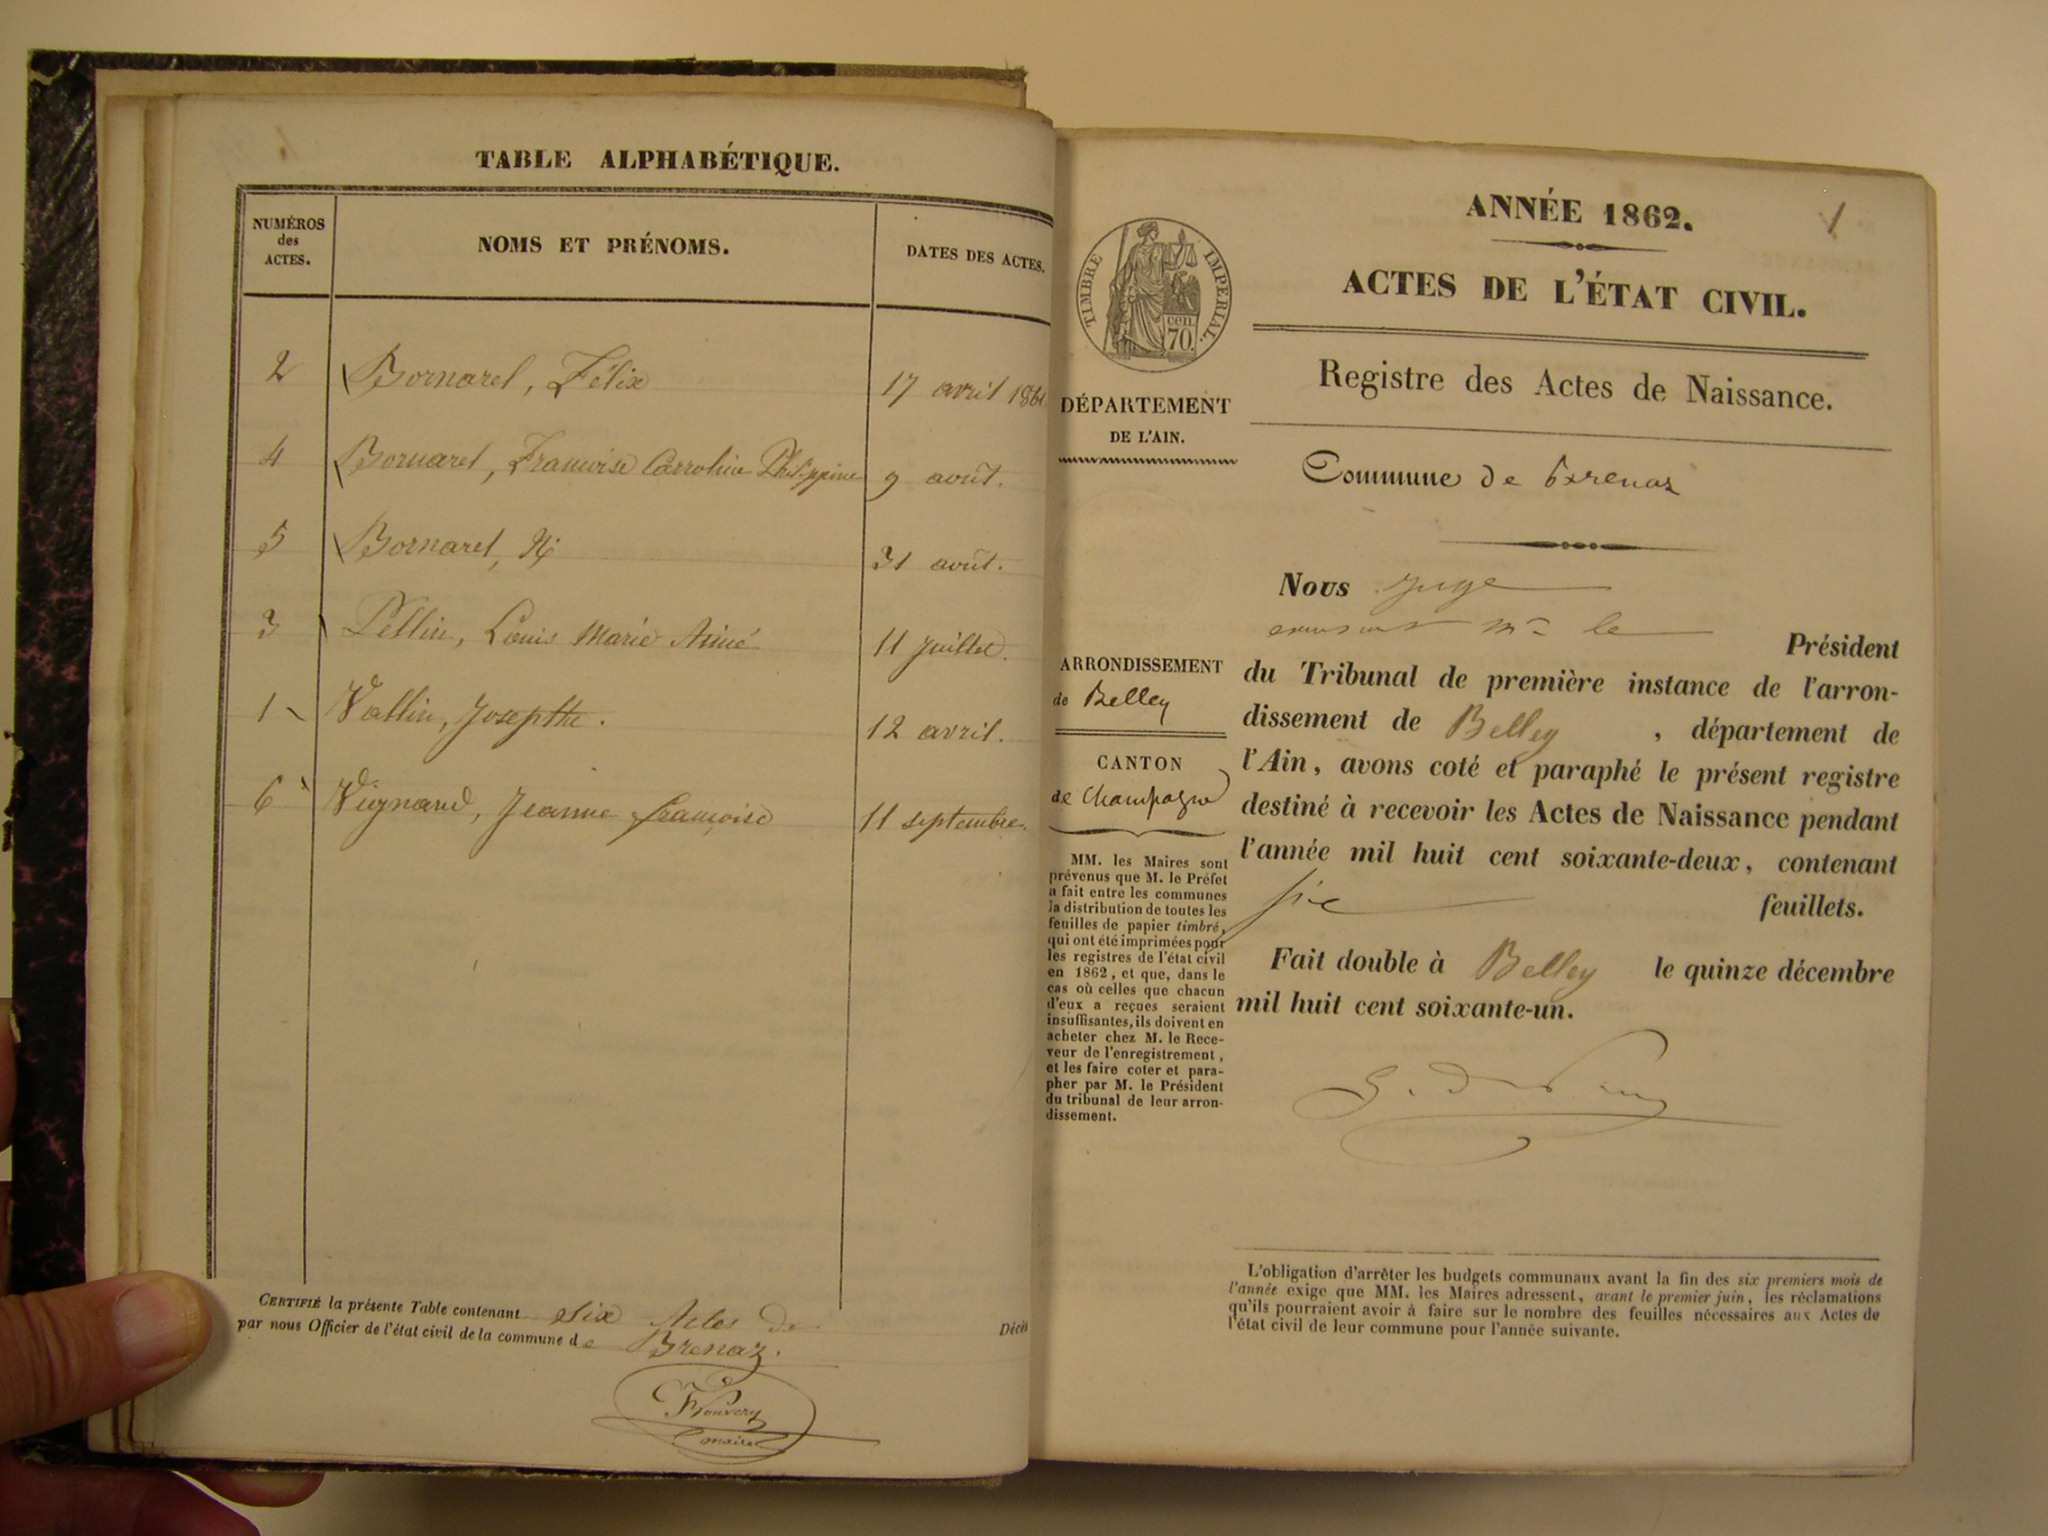 TABLE ALPHABÉTIQUE.
NUMÉROS
des
ACTES.
NOMS ET PRÉNOMS.
DATES DES ACTES.
2 Bornarel, Félix 17 avril
4 Bornarel, Françoise Carroline Philippine 9 août.
5 Bornarel, N. 31 août.
3 Pellin, Louis Marie Aimé 11 juillet.
1 Vallin, Josepthe. 12 avril.
6 Vugnand, Jeanne françoise 11 septembre.
CERTIFIÉ la présente Table contenant six Actes de
par nous Officier de l'état civil de la commune de Brenaz.
maire
ANNÉE 1862.
1
ACTES DE L'ÉTAT CIVIL.
TIMBRE IMPÉRIAL.
cen.
70.
Registre des Actes de Naissance.
DÉPARTEMENT
DE L'AIN.
Commune de Brenaz
Nous juge
Mr le Président
du Tribunal de première instance de l'arron-
dissement de Belley, département de
l'Ain, avons coté et paraphé le présent registre
destiné à recevoir les Actes de Naissance pendant
l'année mil huit cent soixante-deux, contenant
six feuillets.
Fait double à Belley le quinze décembre
mil huit cent soixante-un.
ARRONDISSEMENT
de Belley
CANTON
de Champagne
MM. les Maires sont
prévenus que M. le Préfet
a fait entre les communes
la distribution de toutes les
feuilles de papier timbré,
qui ont été imprimées pour
les registres de l'état civil
en 1862, et que, dans le
cas où celles que chacun
d'eux a reçues seraient
insuffisantes, ils doivent en
acheter chez M. le Rece-
veur de l'enregistrement,
et les faire coter et para-
pher par M. le Président
du tribunal de leur arron-
dissement.
L'obligation d'arrêter les budgets communaux avant la fin des six premiers mois de
l'année exige que MM. les Maires adressent, avant le premier juin, les réclamations
qu'ils pourraient avoir à faire sur le nombre des feuilles nécessaires aux Actes de
l'état civil de leur commune pour l'année suivante.